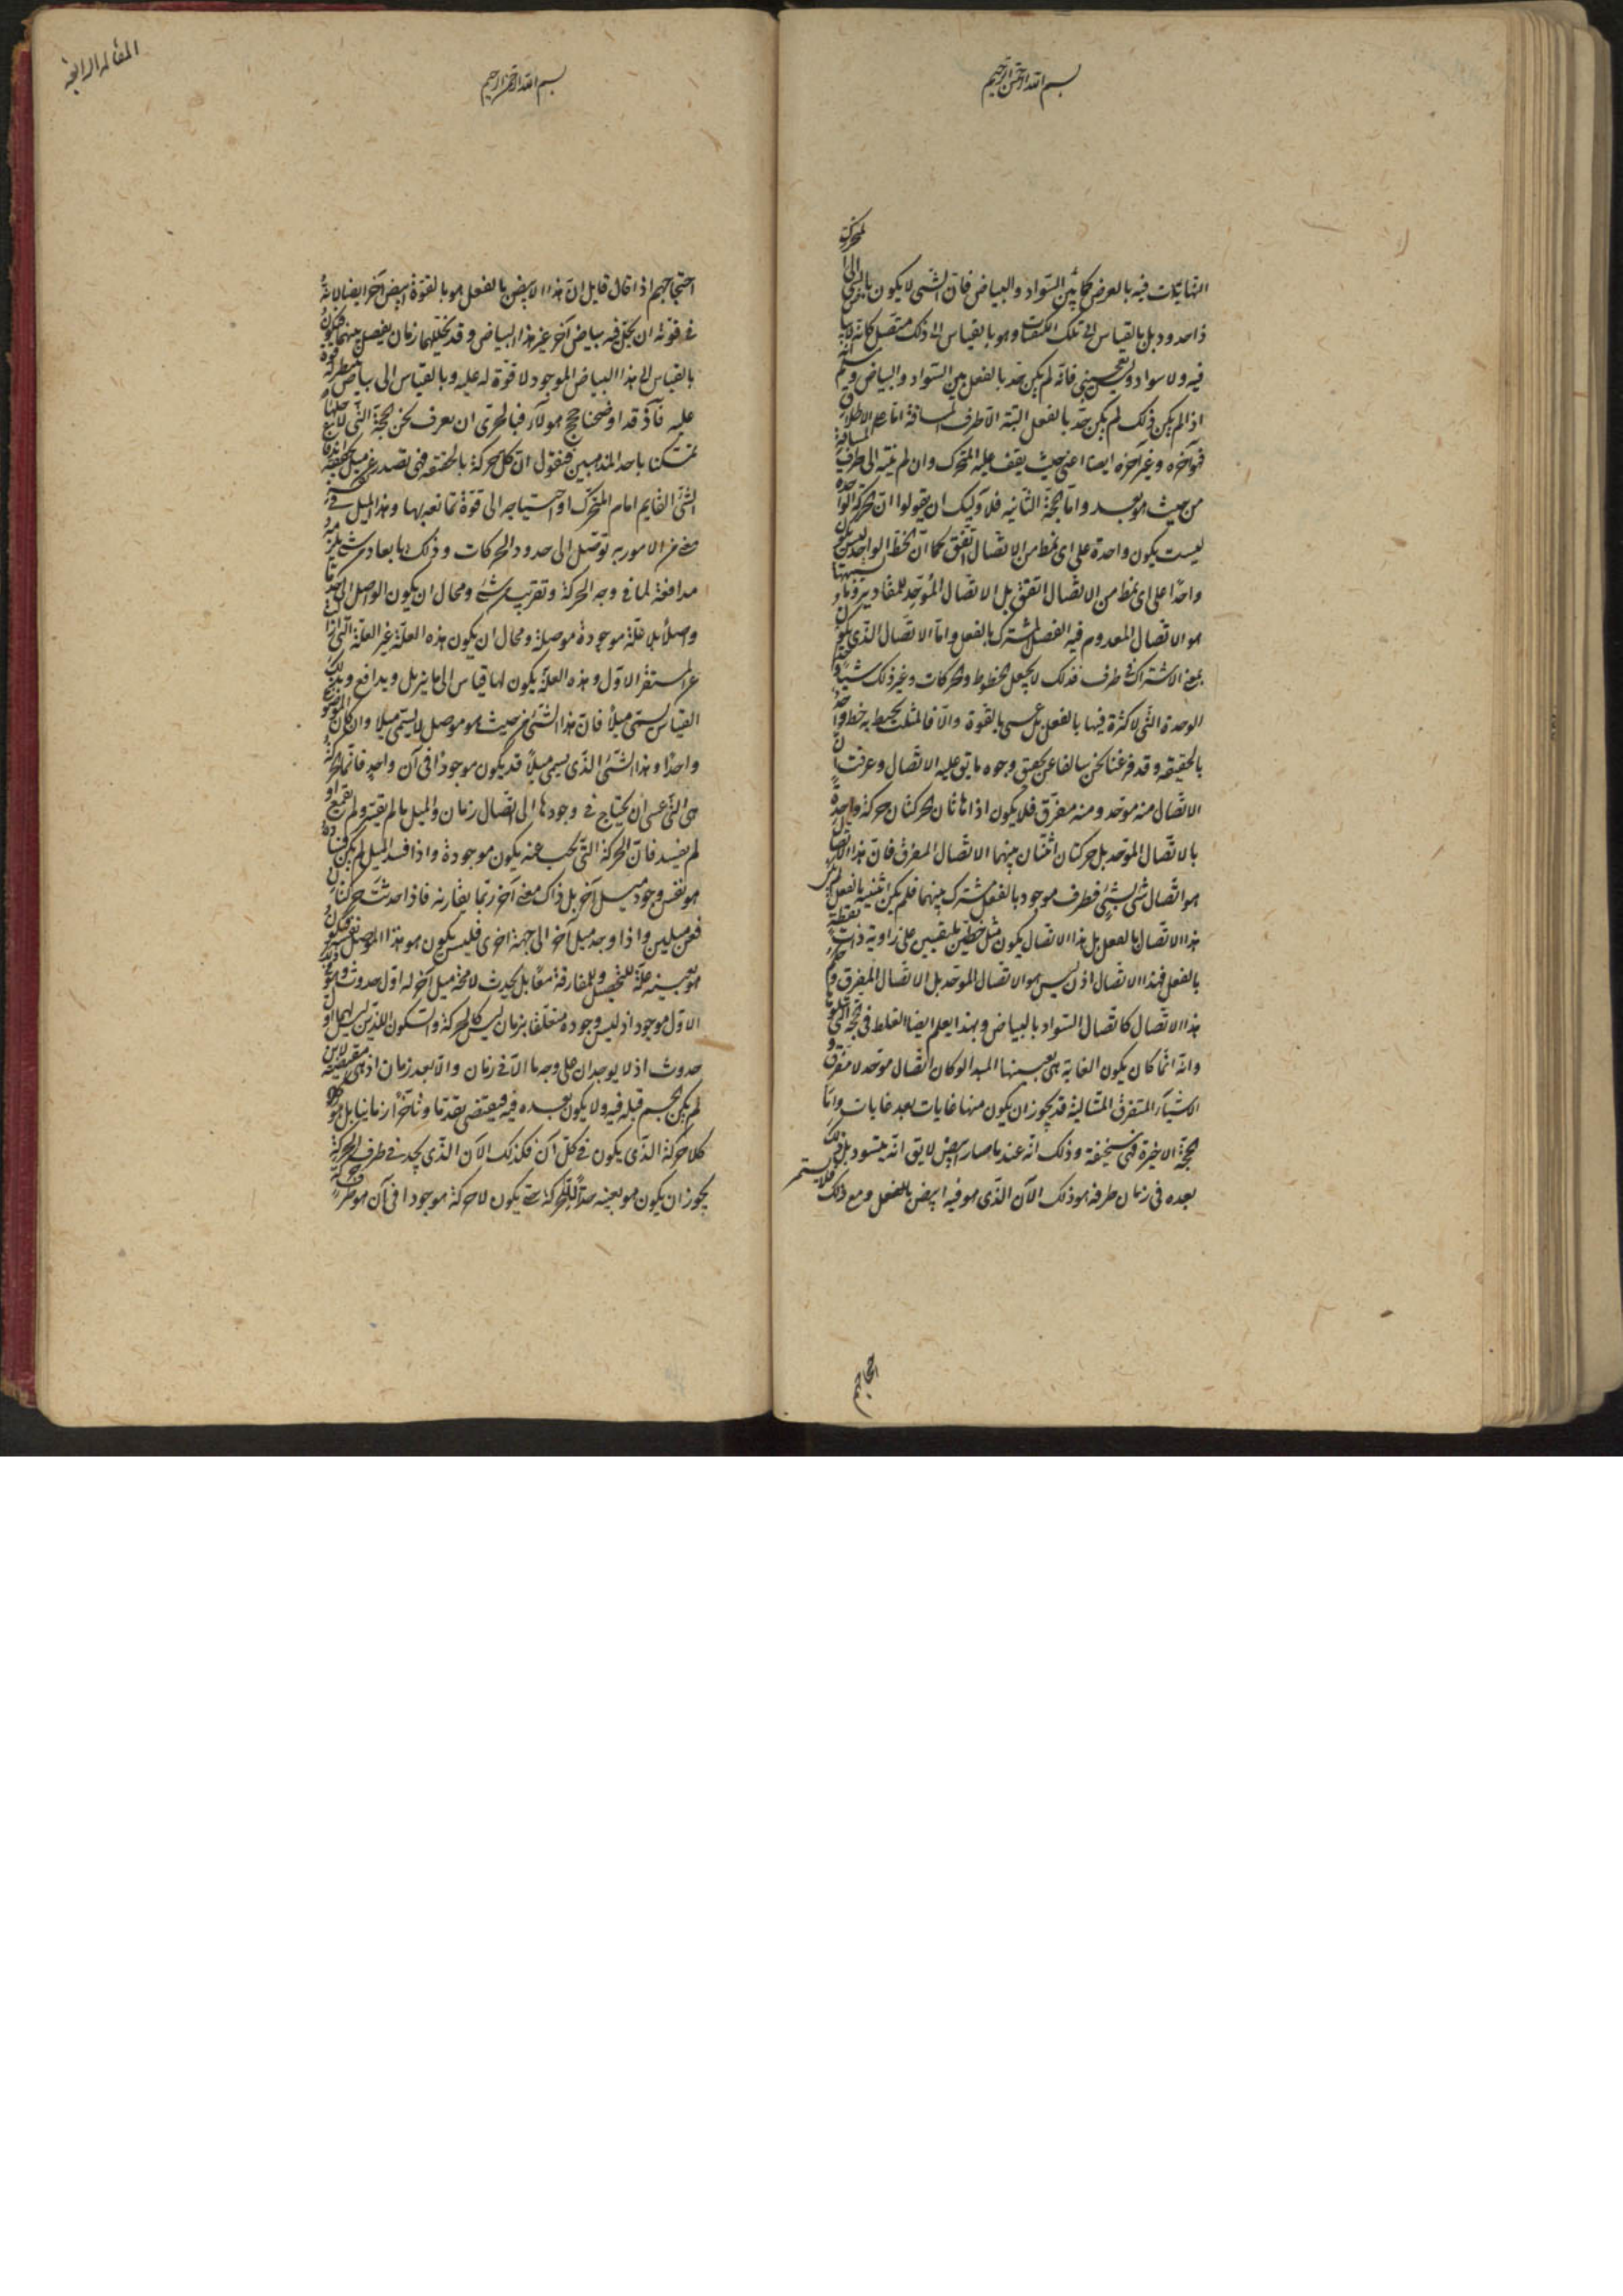 بسم الله الرحمن الرحيم
النهايات فيه بالعرض كما بين السواد والبياض فان الشى لا يكون بالقياس الى المتحرك
ذا حدود بل بالقياس الى تلك وهو بالقياس الى ذلك متصل كانه لا
فيه ولا سواد فانه لم يكن حد بالفعل بين السواد والبياض
اذا لم يكن ذلك لم يكن حد بالفعل البتة الا طرف المسافة اما على الاطلاق
فهو آخره وغير آخره ايضا اعنى حيث يقف عليه المتحرك وان لم ينته الى طرف المسافة
من حيث هو بعد واما الحجة الثانيه فلا وليك ان يقولوا ان الحركة الواحدة
ليست يكون واحدة على اى نمط من الاتصال اتفق كما ان الخط الواحد ليس يكون
واحدا على اى نمط من الاتصال اتفق بل الاتصال الموحد للمقادير
هو الاتصال المعدوم فيه الفصل المشترك بالفعل واما الاتصال الذى يكون
بمعنى الاشتراك فى طرف فذلك لا يجعل الخطوط والحركات وغير ذلك شيئا واحدا
الوحدة التى لا كثرة فيها بالفعل بل عسى بالقوة والا فالمثلث يحيط به خط واحد
بالحقيقه وقد فرغنا نحن سالفا عن تحقيق وجوه ما يق عليه الاتصال وعرفت ان
الاتصال منه موحد ومنه مفرق فلا يكون اذا هاتان الحركتان حركة واحدة
بالاتصال الموحد بل حركتان اثنتان بينهما الاتصال المفرق فان هذا الاتصال
هو اتصال شى بشئ بطرف موجود بالفعل مشترك بينهما فلم يكن اثنينيه بالفعل لم يكن
هذا الاتصال بالفعل بل هذا الاتصال يكون مثل خطين ملتقيين على زاوية ذات نقطة
بالفعل فهذا الاتصال اذن ليس هو الاتصال الموحد بل الاتصال المفرق
هذا الاتصال كاتصال السواد بالبياض وبهذا يعلم ايضا الغلط فى الحجة التى
وانه انما كان يكون الغاية هى بعينها المبدا لو كان اتصال موحد لا مفرق
الاشياء المتفرق المتتالية قد يجوز ان يكون منها غايات بعد غايات واما
الحجة الاخيرة فهى سخيفة وذلك انه عند ما صار ابيض لا يق انه يتسود بل ذلك
بعده فى زمان طرفه هو ذلك الآن الذى هو فيه ابيض بالفعل ومع ذلك فلا يستمر
احتجاجهم
المقالة الرابعة
بسم الله الرحمن الرحيم
احتجاجهم اذا قال قايل ان هذا الابيض بالفعل هو بالقوة ابيض آخر ايضا لانه
فى قوته ان يحل فيه بياض آخر غير هذا البياض وقد تخللهما زمان يفصل بينهما فيكون
بالقياس الى هذا البياض الموجود لا قوة له عليه وبالقياس الى بياض منتظر له قوة
عليه فاذ قد اوضحنا حجج هولاء فبالحرى ان نعرف نحن الحجة التى لاجلها
تمسكنا باحد المذهبين فنقول ان كل حركة بالحقيقه فهى تصدر عن ميل يحققه
الشئ القايم امام المتحرك او احتياجه الى قوة تمانعه بها وهذا الميل فى نفسه
معنى من الامور به توصل الى حدود الحركات وذلك بابعاد من شئ يلزمه
مدافعة لما فى وجه الحركة وتقريب من شئ ومحال ان يكون الواصل الى حد ما
واصلا بلا علة موجودة موصلة ومحال ان يكون هذه العلة غير العلة التى ازالت
عن المستقر الاول وهذه العلة يكون لها قياس الى ما يزيل ويدافع وبذلك
القياس يسمى ميلا فان هذا الشئ من حيث هو موصل لا يسمى ميلا وان كان الموضوع
واحدا وهذا الشئ الذى يسمى ميلا قد يكون موجودا فى آن واحد فانما الحركة
هى التى عسى ان يحتاج فى وجودها الى اتصال زمان والميل ما لم يقسر ولم يقمع او
لم يفسد فان الحركة التى تجب عنه يكون موجودة واذا فسد الميل لم يكن فساده
هو نفس وجود ميل آخر بل ذاك معنى آخر ربما يقارنه فاذا حدثت حركتان
فعن ميلين واذا وجد ميل آخر الى جهة اخرى فليس يكون هو هذا الموصل نفسه فيكون
هو بعينه علة للتحصيل وللمفارقة معا بل يحدث لا محة ميل آخر له اول حدوث وهو فى ذلك
الاول موجود اذ ليس وجوده متعلقا بزمان ليس كالحركة والسكون اللذين ليس لهما اول
حدوث اذ لا يوجدان على وجه ما الا فى زمان والا بعد زمان اذ هى مقتضيه لاين
لم يكن الجسم قبله فيه ولا يكون بعده فيه فيقتضى تقدما وتأخرا زمانيا بل هو
كلا حركة الذى يكون فى كل آن فكذلك الآن الذى يحد فى طرف الحركة
يجوز ان يكون هو بعينه حدا للحركة حتى يكون لا حركة موجودا فى آن هو طرف حركة